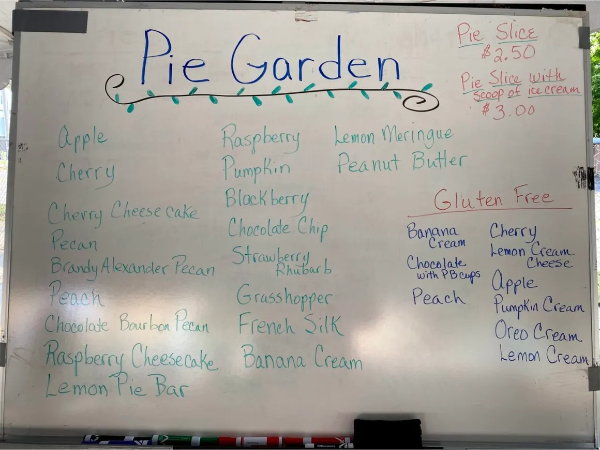 Pie Garden
Pie Slice
$2.50
Pie Slice with
scoop of ice cream
$3.00
Apple
Cherry
Cherry Cheesecake
Pecan
Brandy Alexander Pecan
Peach
Chocolate Bourbon Pecan
Raspberry Cheesecake
Lemon Pie Bar
Raspberry
Pumpkin
Blackberry
Chocolate Chip
Strawberry
Rhubarb
Grasshopper
French Silk
Banana Cream
Lemon Meringue
Peanut Butler
Gluten Free
Banana
Cream
Chocolate
with PB cups
Peach
Cherry
Lemon Cream
Cheese
Apple
Pumpkin Cream
Oreo Cream
Lemon Cream